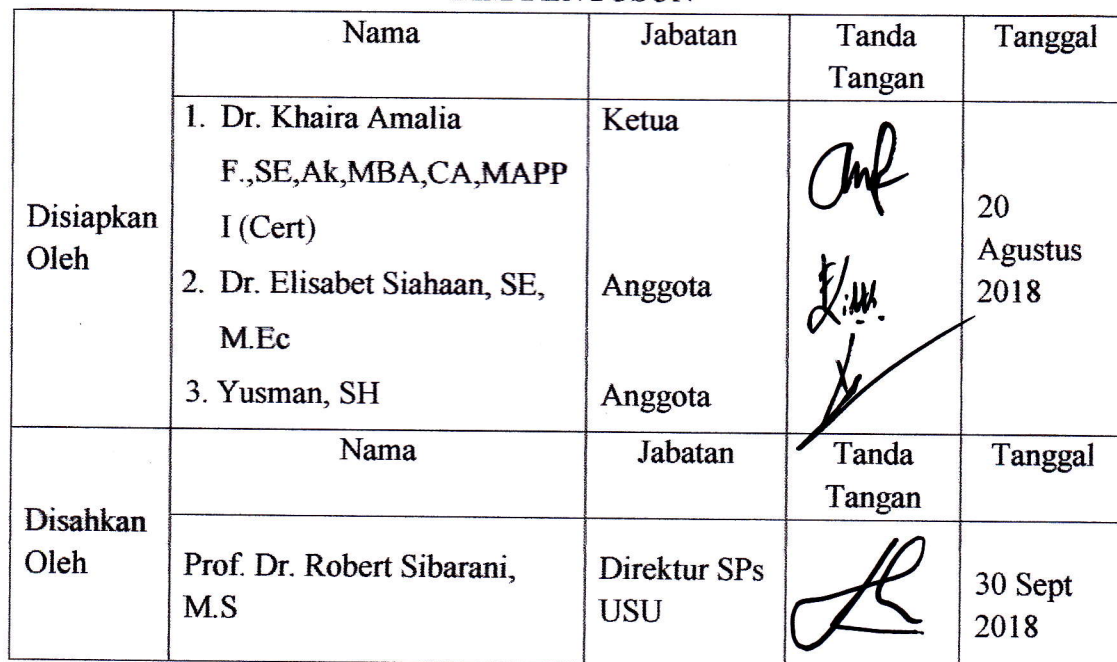 Nama Jabatan Tanda Tanggal
Tangan
Disiapkan
Oleh
1. Dr. Khaira Amalia Ketua
F.,SE,Ak,MBA,CA,MAPP
I (Cert)
2. Dr. Elisabet Siahaan, SE, Anggota
M.Ec
3. Yusman, SH Anggota
20
Agustus
2018
Nama Jabatan Tanda Tanggal
Tangan
Disahkan
Oleh
Prof. Dr. Robert Sibarani, Direktur SPs 30 Sept
M.S USU 2018